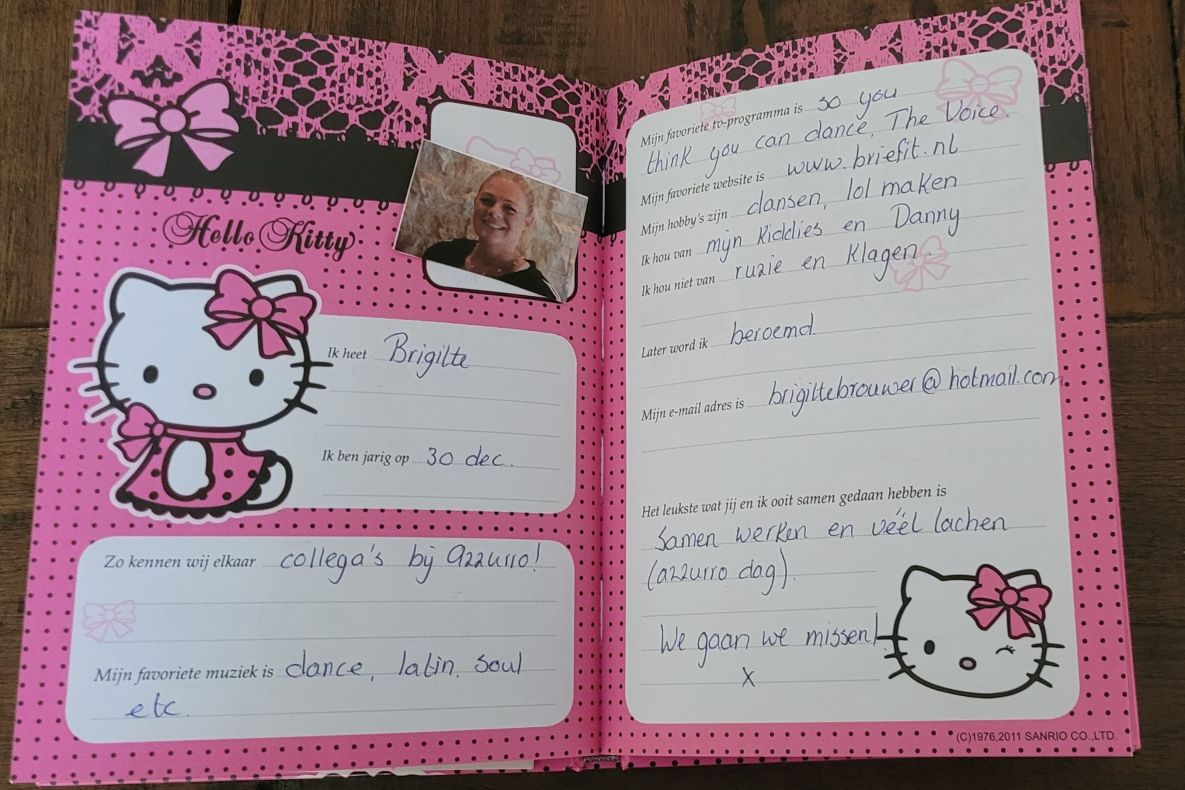 Hello Kitty
Ik heet Brigitte
Ik ben jarig op 30 dec.
Zo kennen wij elkaar collega's bij azzurro!
Mijn favoriete muziek is dance, latin, soul
etc.
Mijn favoriete tv-programma is so you
think you can dance, The Voice.
Mijn favoriete website is www.briefit.nl
Mijn hobby's zijn dansen, lol maken
Ik hou van mijn kiddies en Danny
Ik hou niet van ruzie en klagen.
Later word ik beroemd.
Mijn e-mail adres is brigittebrouwer@hotmail.com
Het leukste wat jij en ik ooit samen gedaan hebben is
Samen werken en véél lachen
(azzurro dag).
We gaan we missen!
x
(C)1976,2011 SANRIO CO.,LTD.